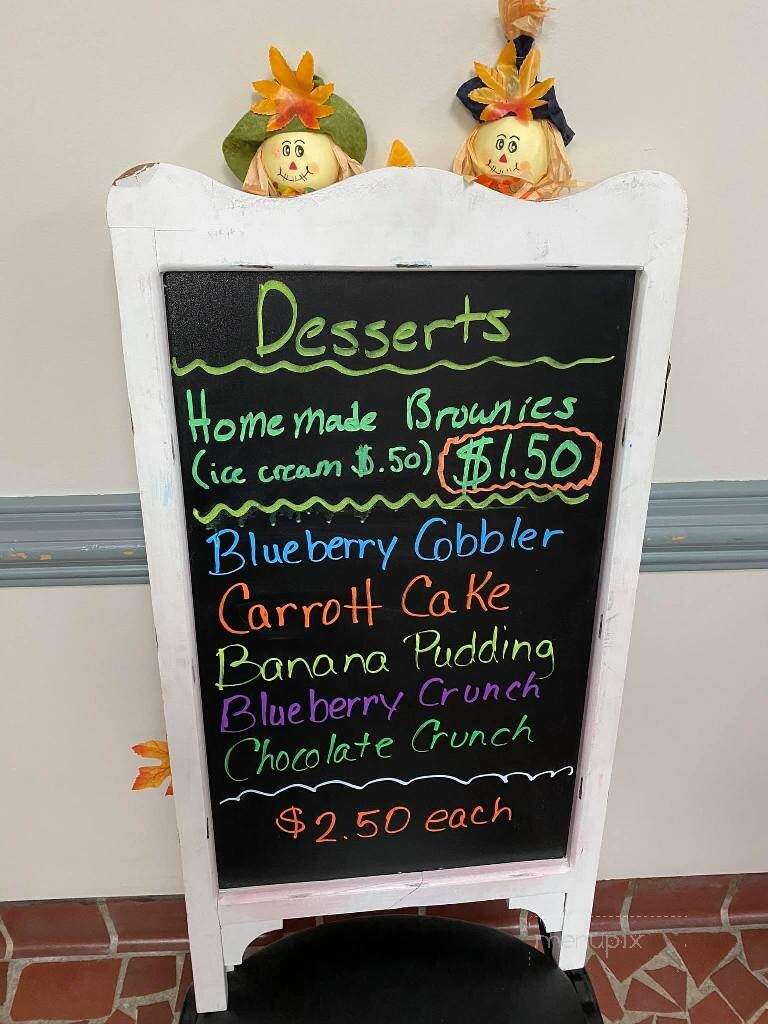 Desserts
Homemade Brownies
(ice cream $.50) $1.50
Blueberry Cobbler
Carrott Cake
Banana Pudding
Blueberry Crunch
Chocolate Crunch
$2.50 each
menupix